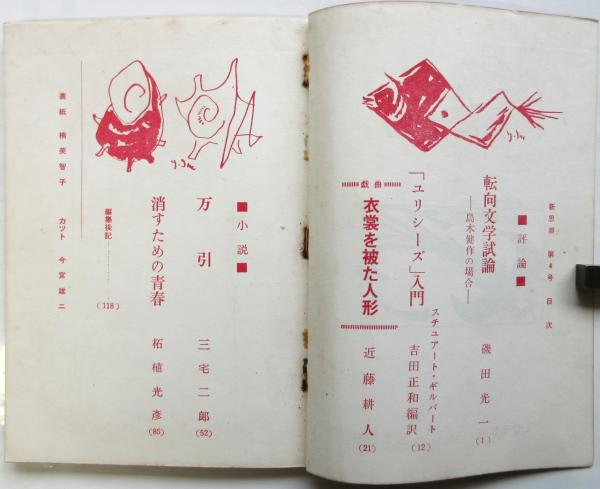 新思潮 第4号 目次
■評論■
転向文学試論
―島木健作の場合―
磯田光一
(1)
「ユリシーズ」入門
スチュアート・ギルバート
吉田正和編訳
(12)
戯曲
衣裳を被た人形
近藤耕人
(21)
■小説■
万引
三宅二郎
(52)
消すための青春
柘植光彦
(85)
編集後記…………
(118)
表紙 楠美智子 カット 今宮雄二